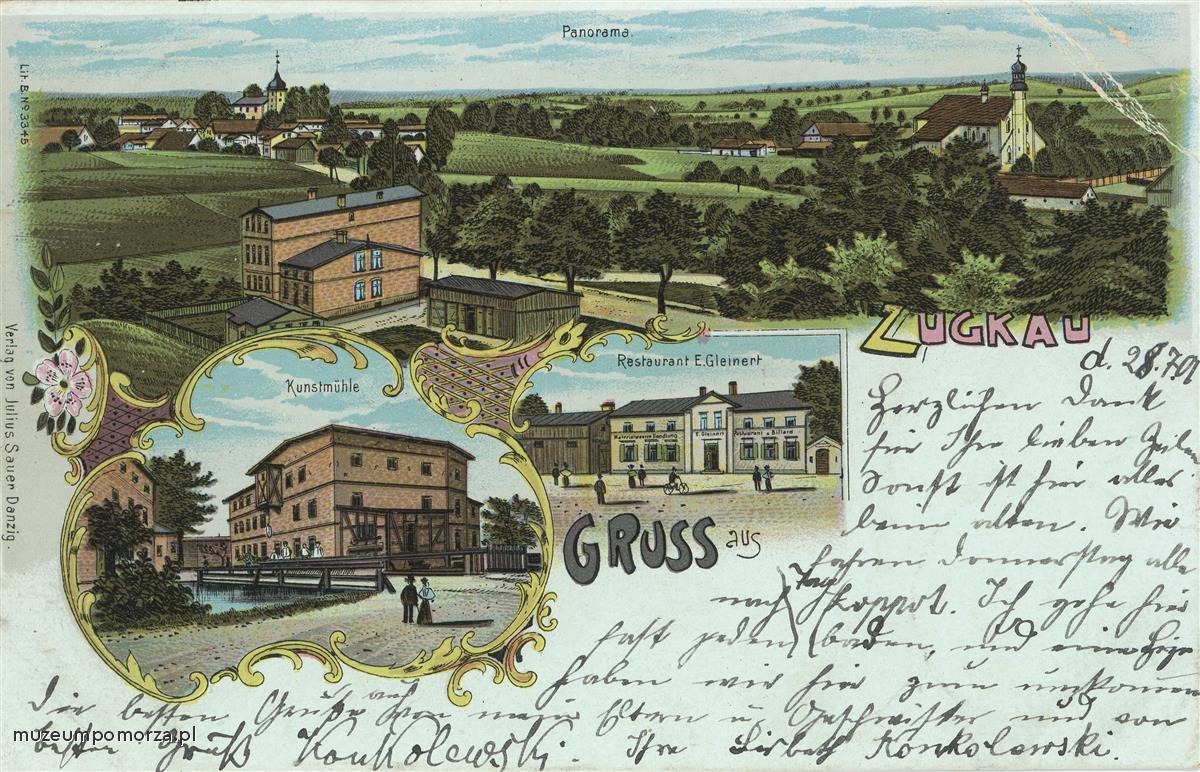 Panorama.
Lit. B. No 3345
Verlag von Julius Sauer Danzig.
Kunstmühle
Restaurant E. Gleinert
Materialwaaren Handlung
E. Gleinert
Restaurant u. Billard
ZUGKAU
GRUSS aus
d. 28.7.01
Herzlichen Dank
für Ihre lieben Zeilen
Sonst ist hier alles
beim alten. Wir
fahren Donnerstag alle
nach Zoppot. Ich gehe hier
fast jeden Tag baden, und eine
haben wir hier zum umkommen
Die besten Grüße auch von meinen Eltern u. Geschwister und von
besten Gruß Konkolewski. Ihre Lisbeth Konkolewski.
muzeumpomorza.pl